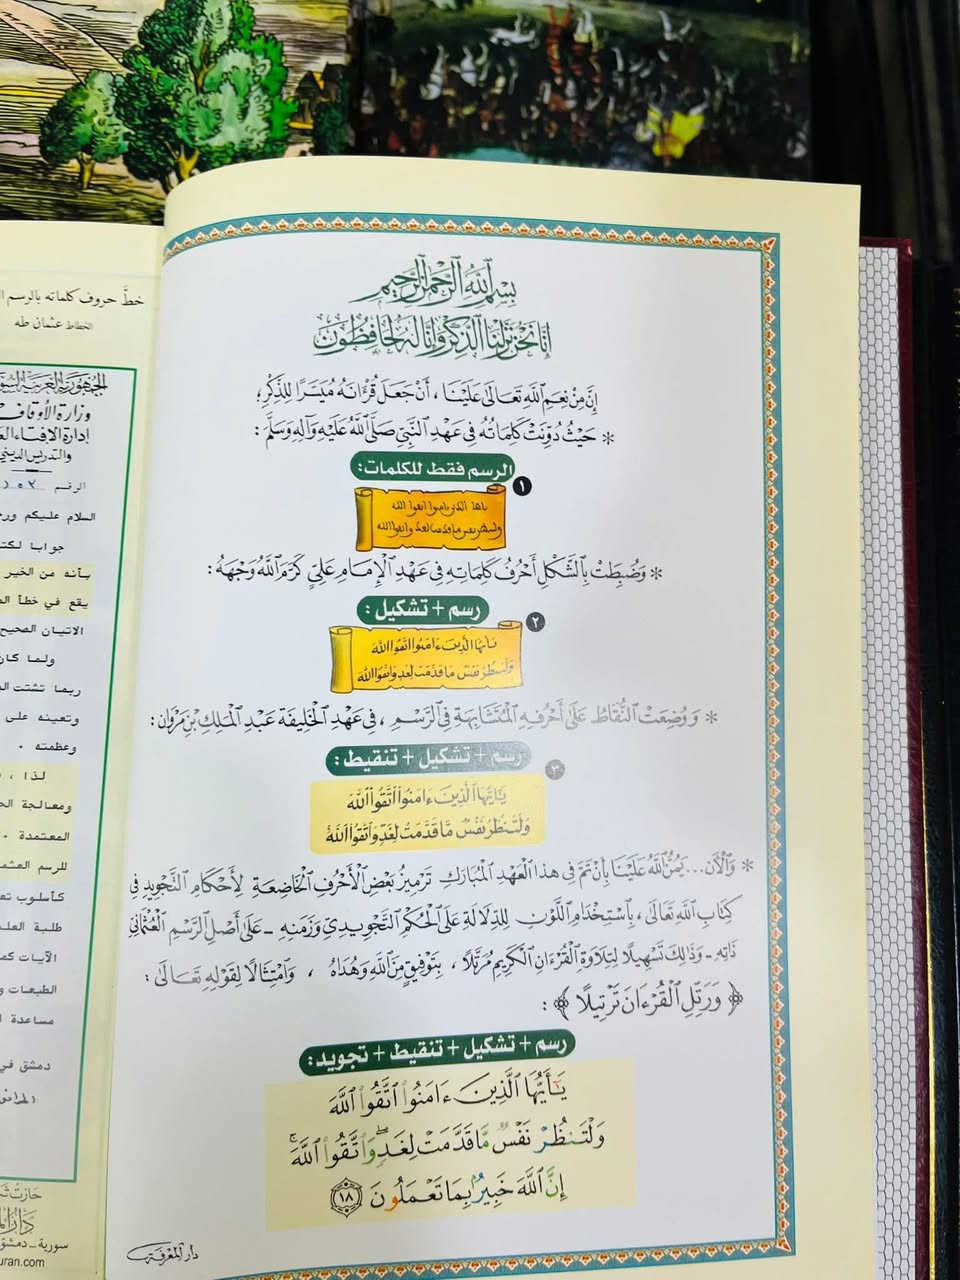 بِسْمِ اللَّهِ الرَّحْمٰنِ الرَّحِيمِ
إِنَّا نَحْنُ نَزَّلْنَا الذِّكْرَ وَإِنَّا لَهُ لَحَافِظُونَ
إِنَّ مِنْ نِعَمِ اللَّهِ تَعَالَىٰ عَلَيْنَا ، أَنْ جَعَلَ قُرْءَانَهُ مُيَسَّرًا لِلذِّكْرِ ؛
* حَيْثُ دُوِّنَتْ كَلِمَاتُهُ فِي عَهْدِ النَّبِيِّ صَلَّى اللَّهُ عَلَيْهِ وَآلِهِ وَسَلَّمَ :
الرسم فقط للكلمات:
١
* وَضُبِطَتْ بِالشَّكْلِ أَحْرُفُ كَلِمَاتِهِ فِي عَهْدِ الْإِمَامِ عَلِيٍّ كَرَّمَ اللَّهُ وَجْهَهُ :
رسم + تشكيل :
٢
* وَوُضِعَتْ النُّقَاطُ عَلَىٰ أَحْرُفِهِ الْمُتَشَابِهَةِ فِي الرَّسْمِ ، فِي عَهْدِ الْخَلِيفَةِ عَبْدِ الْمَلِكِ بْنِ مَرْوَانَ :
رسم + تشكيل + تنقيط :
٣
يَٰٓأَيُّهَا ٱلَّذِينَ ءَامَنُوا۟ ٱتَّقُوا۟ ٱللَّهَ
وَلْتَنظُرْ نَفْسٌ مَّا قَدَّمَتْ لِغَدٍ وَٱتَّقُوا۟ ٱللَّهَ
* وَالْآن... يَمُنُّ اللَّهُ عَلَيْنَا بِأَنْ تَمَّ فِي هذا الْعَهْدِ الْمُبَارَكِ تَرْمِيزُ بَعْضِ الْأَحْرُفِ الْخَاضِعَةِ لِأَحْكَامِ التَّجْوِيدِ فِي
كِتَابِ اللَّهِ تَعَالَىٰ ، بِاسْتِخْدَامِ اللَّوْنِ لِلدِّلَالَةِ عَلَى الْحُكْمِ التَّجْوِيدِيِّ وَزَمَنِهِ ـ عَلَىٰ أَصْلِ الرَّسْمِ الْعُثْمَانِيِّ
ذَاتِهِ ـ وَذَٰلِكَ تَسْهِيلًا لِتِلَاوَةِ الْقُرْءَانِ الْكَرِيمِ مُرَتَّلًا ، بِتَوْفِيقٍ مِنَ اللَّهِ وَهُدَاهُ ، وَامْتِثَالًا لِقَوْلِهِ تَعَالَىٰ :
﴿ وَرَتِّلِ الْقُرْءَانَ تَرْتِيلًا ﴾ :
رسم + تشكيل + تنقيط + تجويد:
يَٰٓأَيُّهَا ٱلَّذِينَ ءَامَنُوا۟ ٱتَّقُوا۟ ٱللَّهَ
وَلْتَنظُرْ نَفْسٌ مَّا قَدَّمَتْ لِغَدٍ ۖ وَٱتَّقُوا۟ ٱللَّهَ ۚ
إِنَّ ٱللَّهَ خَبِيرٌۢ بِمَا تَعْمَلُونَ ١٨
دار المعرفة
خطَّ حروف كلماته بالرسم
الخطاط عثمان طه
الجمهورية العربية
وزارة الأوقاف
إدارة الإفتاء
والتدريس الديني
الرقم
السلام عليكم
جوابا
بأنه من الخير
يقع في خطأ
الاتيان الصحيح
ولما كان
ربما تشتت
وتعينه على
وعظمته ٠
لذا ،
ومعالجة
المعتمدة ٠
للرسم
كأسلوب
طلبة
الآيات
الطبعات
مساعدة
دمشق في
سورية ـ دمشق
uran.com